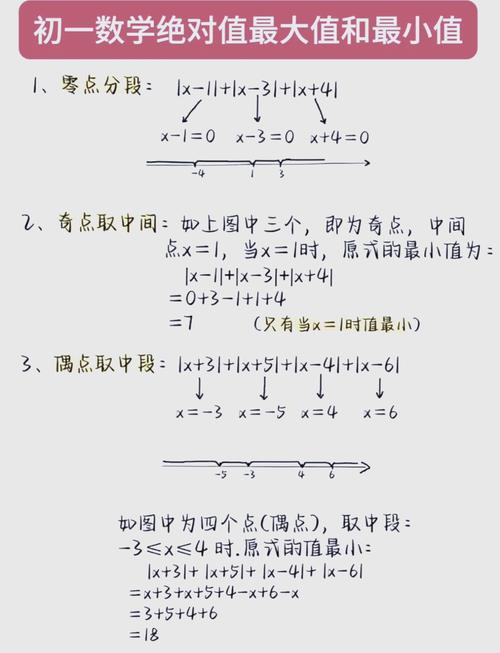 初一数学绝对值最大值和最小值
1、零点分段：|x-1|+|x-3|+|x+4|
x-1=0 x-3=0 x+4=0
-4 1 3
2、奇点取中间：如上图中三个，即为奇点，中间
点x=1，当x=1时，原式的最小值为：
|x-1|+|x-3|+|x+4|
=0+3-1+1+4
=7 (只有当x=1时值最小)
3、偶点取中段：|x+3|+|x+5|+|x-4|+|x-6|
x=-3 x=-5 x=4 x=6
-5 -3 4 6
如图中为四个点(偶点)，取中段：
-3≤x≤4 时.原式的值最小：
|x+3|+|x+5|+|x-4|+|x-6|
=x+3+x+5+4-x+6-x
=3+5+4+6
=18